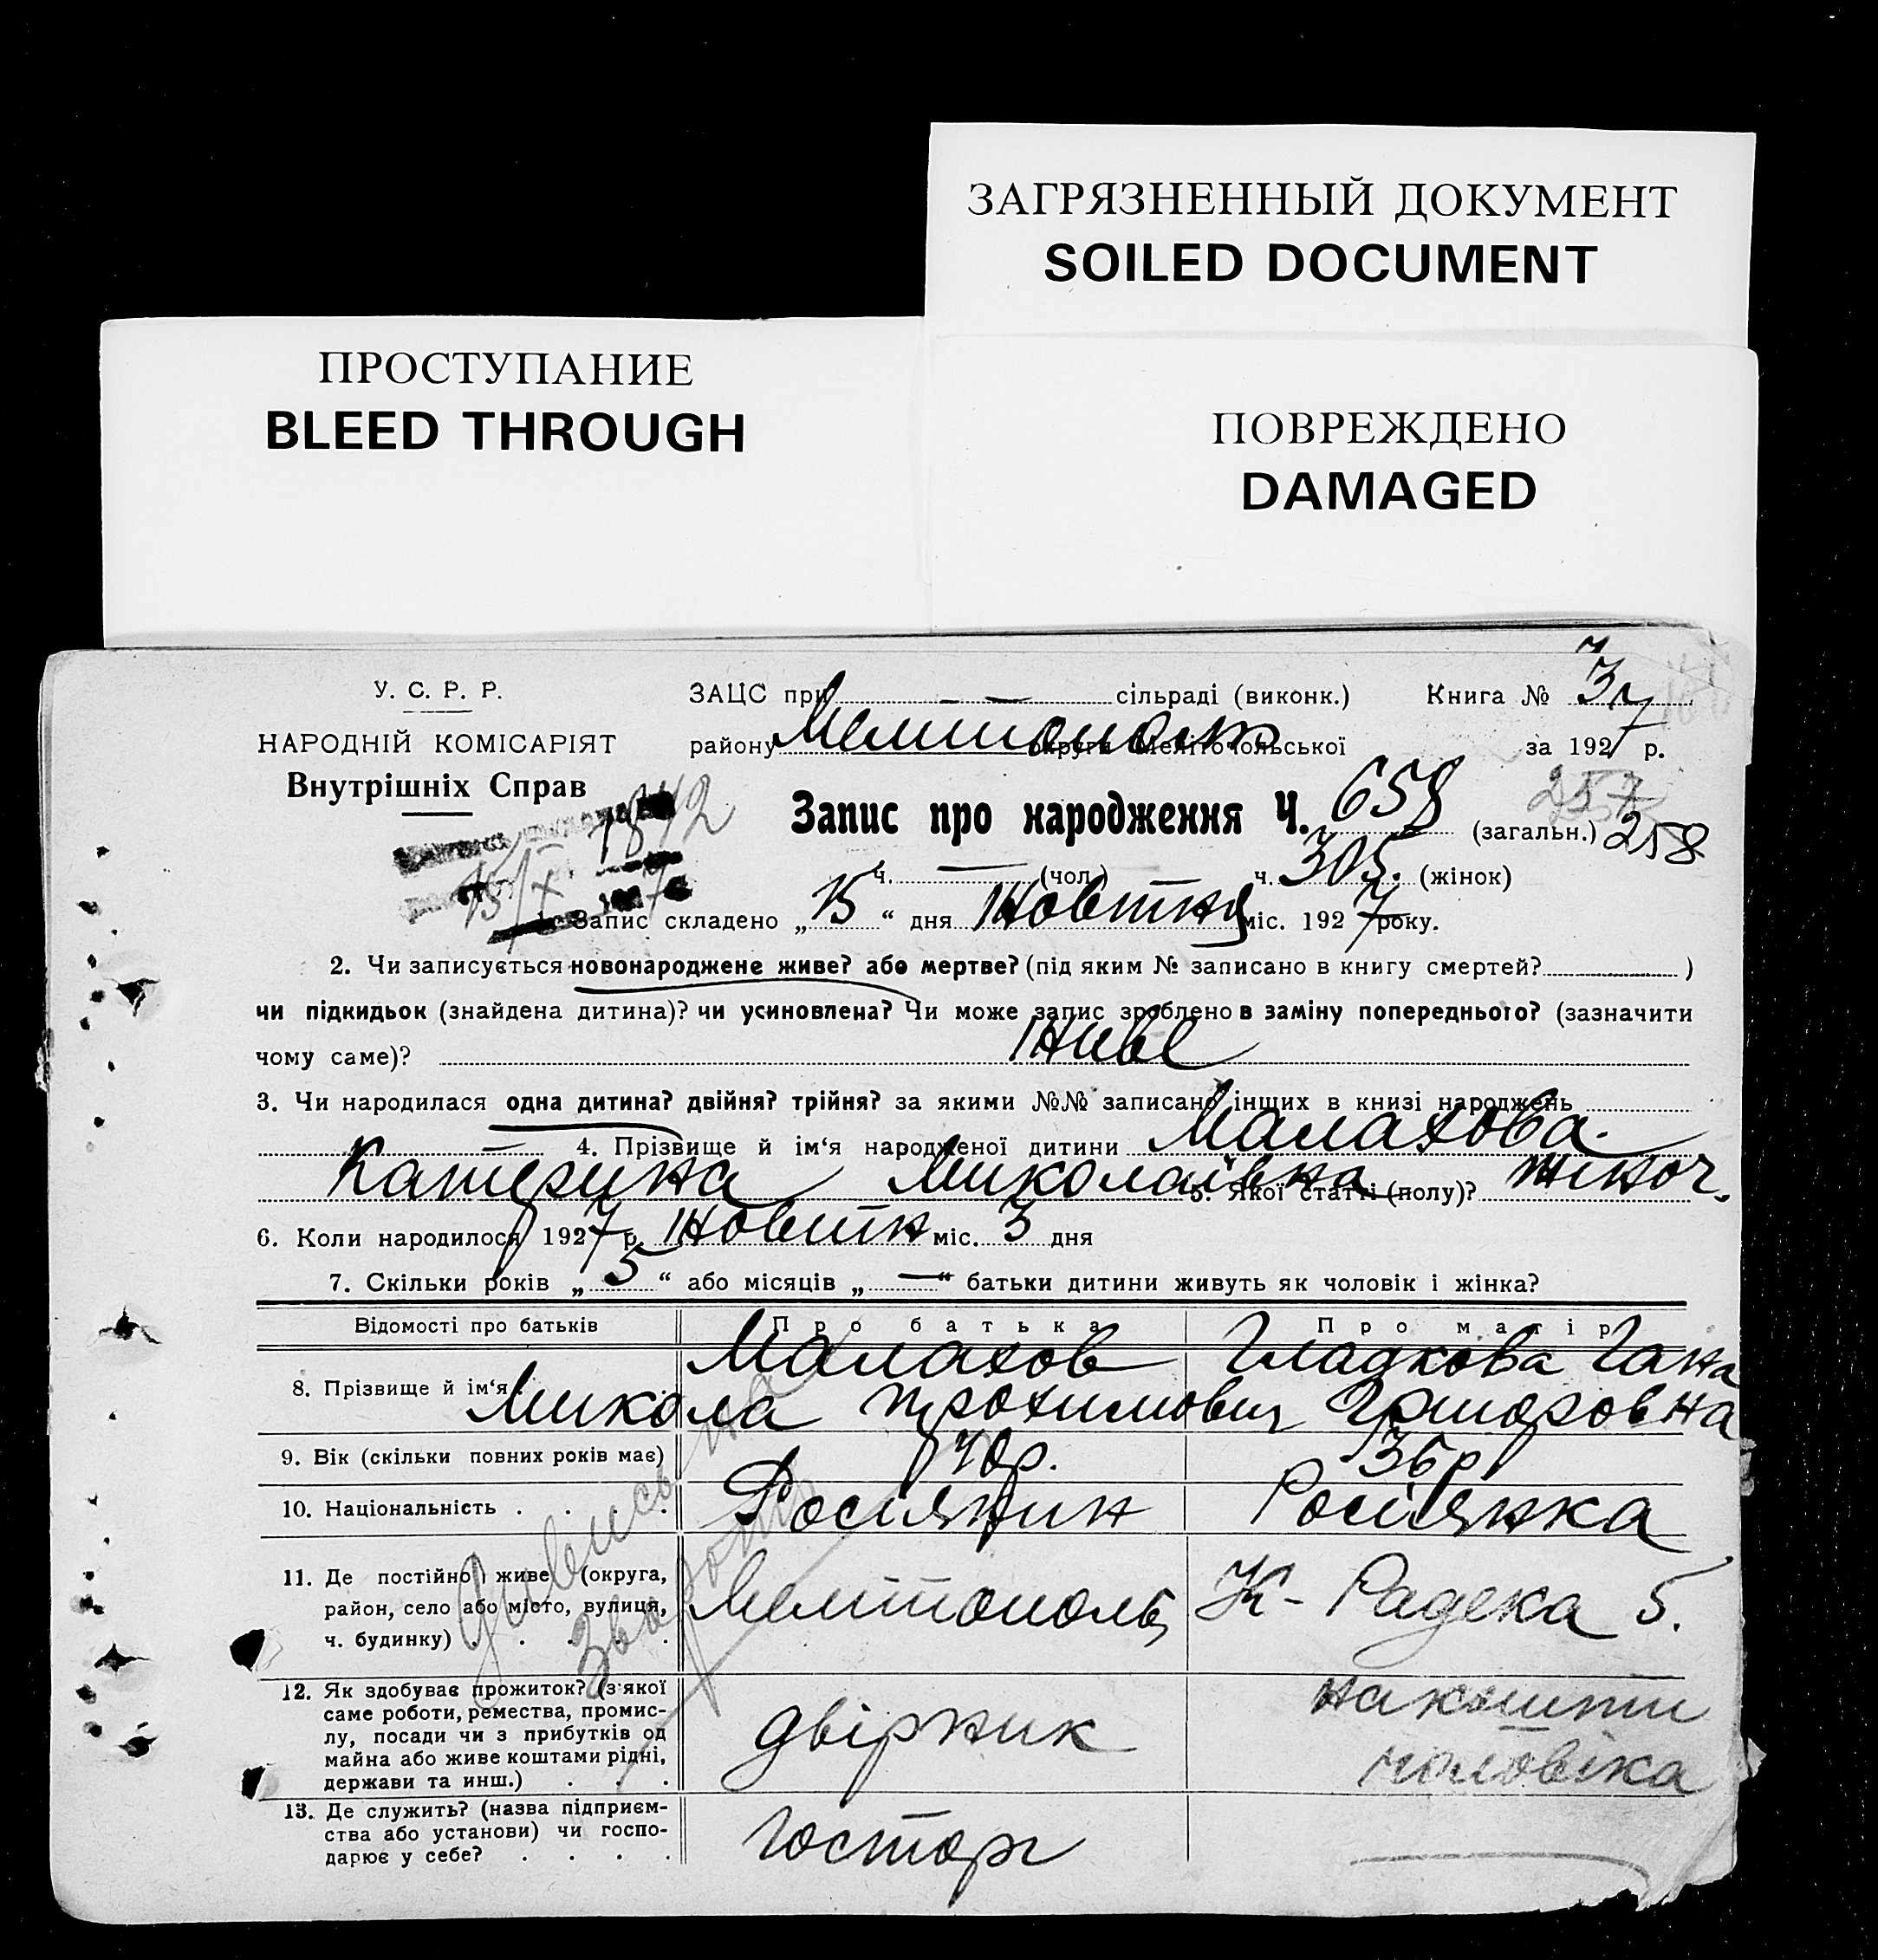 ЗАГРЯЗНЕННЫЙ ДОКУМЕНТ
SOILED DOCUMENT
ПРОСТУПАНИЕ
BLEED THROUGH
ПОВРЕЖДЕНО
DAMAGED
У. С. Р. Р.
НАРОДНІЙ КОМІСАРІЯТ
Внутрішніх Справ
ЗАЦС при — — сільраді (виконк.) Книга №
району округи Мелітопольської за 1927 р.
1842
Запис про народження Ч. 658 (загальн.) 258
257
ч. — (чол.) ч. 305. (жінок)
15/X 7
1. Запис складено „15“ дня Жовтня міс. 1927 року.
2. Чи записується новонароджене живе? або мертве? (під яким № записано в книгу смертей? )
чи підкидьок (знайдена дитина)? чи усиновлена? Чи може запис зроблено в заміну попереднього? (зазначити
чому саме)? Живе
3. Чи народилася одна дитина? двійня? трійня? за якими №№ записано інших в книзі народжень
— 4. Прізвище й ім‘я народженої дитини Малахова
Катерина Миколаівна 5. Якої статті (полу)? жіноч.
6. Коли народилося 1927 р. Жовтн міс. 3 дня
7. Скільки років „5“ або місяців „—“ батьки дитини живуть як чоловік і жінка?
Відомості про батьків Про батька Про матір
8. Прізвище й ім‘я Малахов Микола Трохимович Гладкова Гана Григоровна
9. Вік (скільки повних років має) 40р. 36р
10. Національність . . . Росіянин Росіянка
11. Де постійно живе (округа,
район, село або місто, вулиця,
ч. будинку) . . . . Мелітополь К-Радека 5.
12. Як здобуває прожиток? (з якої
саме роботи, ремества, промис-
лу, посади чи з прибутків од
майна або живе коштами рідні,
держави та инш.) . . . двірник на кошти чоловіка
13. Де служить? (назва підприєм-
ства або установи) чи госпо-
дарює у себе? . . . . Госторг